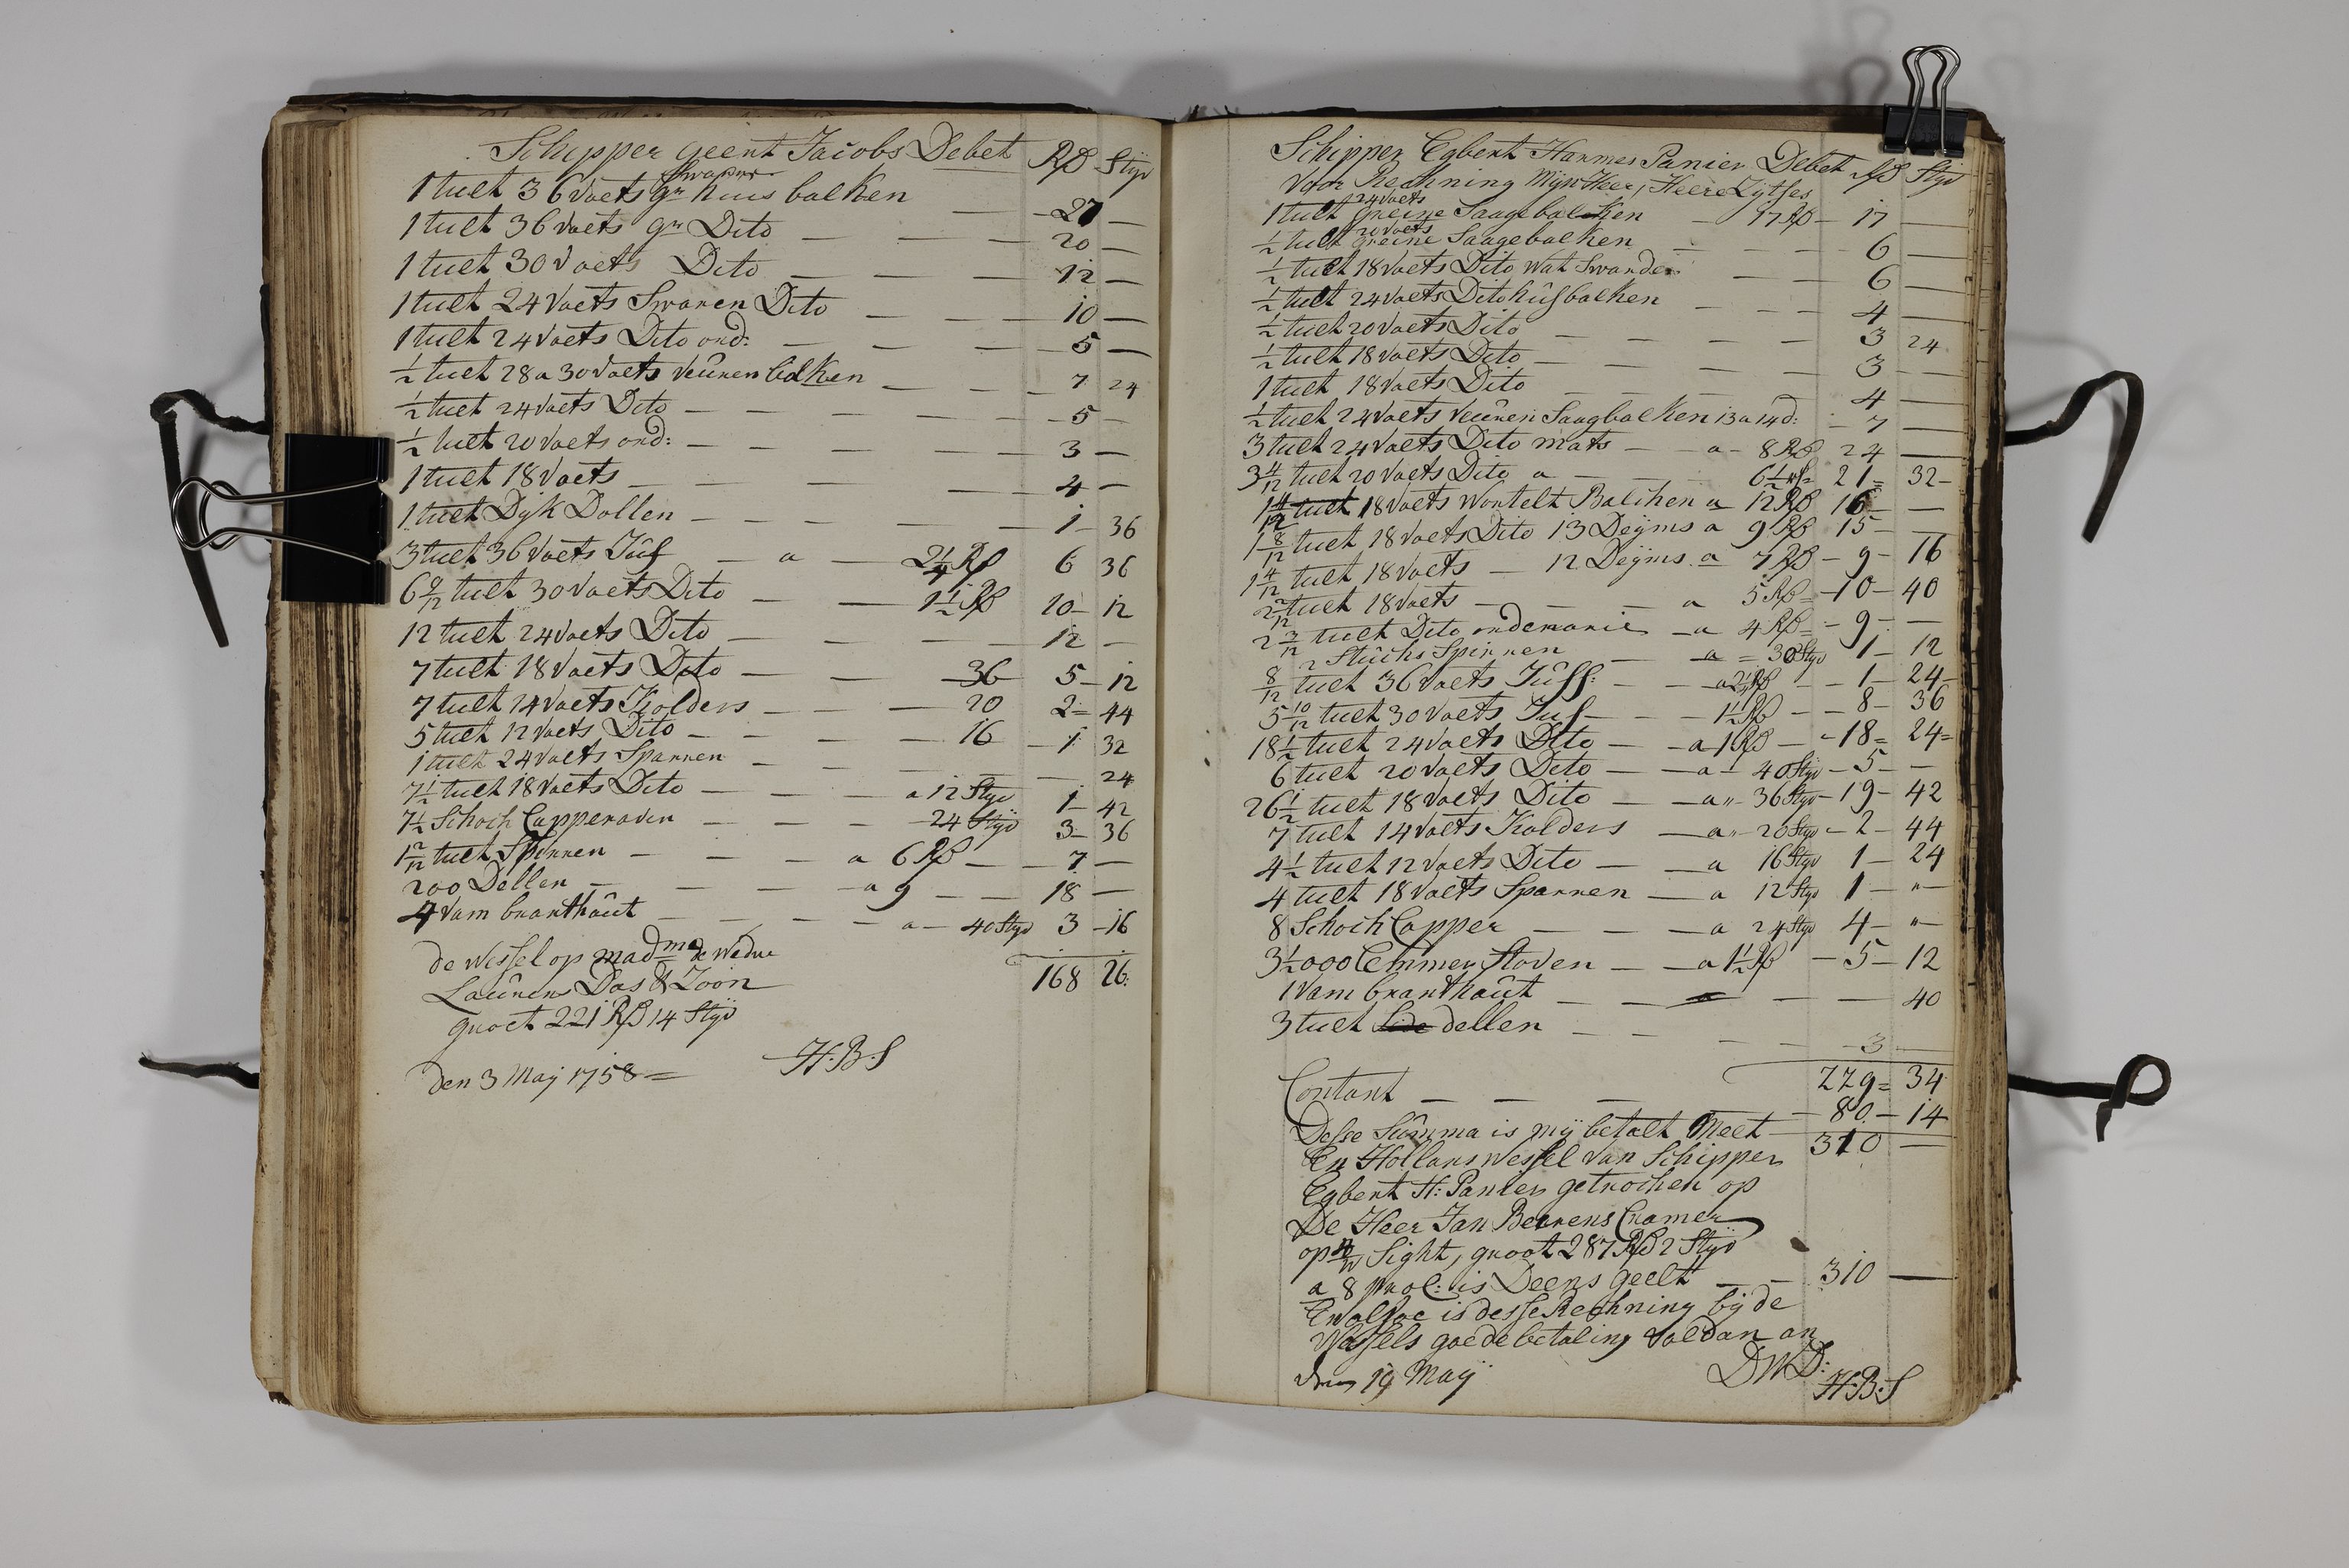 Schipper geert Jacobs Debet Rd Styv
1 tult 36 Voets gr Swaner huis balken — 27 —
1 tult 36 Voets gr Dito — — — 20 —
1 tult 30 Voets Dito — — — 12 —
1 tult 24 Voets Swaren Dito — — — 10 —
1 tult 24 Voets Dito ond: — — — 5 —
1/2 tult 28 a 30 Voets Veuren balken — — 7 24
1/2 tult 24 Voets Dito — — — — 5 —
1/2 tult 20 Voets ond: — — — — 3 —
1 tult 18 Voets — — — — 4 —
1 tult Dyk Dollen — — — — 1 — 36
3 tult 36 Voets Juf — a — 2 1/4 Rd 6 36
6 9/12 tult 30 Voets Dito — — 1 1/2 Rd 10 — 12
12 tult 24 Voets Dito — — — 12 —
7 tult 18 Voets Dito — — 36 5 — 12
7 tult 14 Voets Kolders — — — 20 2 = 44
5 tult 12 Voets Dito — — — — 16 — 1 32
1 tult 24 Voets Sparren — — — — 24
7 1/2 tult 18 Voets Dito — — — a 12 Styv 1 — 42
7 1/2 Schoch Capperaven — — — 24 Styv 3 — 36
1 2/12 tult Spirren — — — a 6 Rd — — 7 —
200 Dellen — — — — a 9 — — 18 —
4 Vam branthout — — — — a — 40 Styv 3 — 16
de Wessel op madme de Wedue
Laurens Das & Zoon 168 26:
groet 221 Rd 14 Styv
den 3 May 1758 = H.B.S
Schipper Egbert Harmes Panier Debet Rd Styv
Voor Rechning Mijn Heer, Heere Zytses
1 tult 24 Voets Greine Saagebalken — 17 Rd — 17 —
1/2 tult 20 Voets Greine Saagebalken — — — 6 —
1/2 tult 18 Voets Dito wat Swarder — — 6 —
1/2 tult 24 Voets Dito husbalken — — — 4 —
1/2 tult 20 Voets Dito — — — — 3 24
1/2 tult 18 Voets Dito — — — — 3 —
1 tult 18 Voets Dito — — — — 4 —
1/2 tult 24 Voets Veuren Saagbalken 13 a 14 d: — 7 —
3 tult 24 Voets Dito mats — — a — 8 Rd 24 —
3 4/12 tult 20 Voets Dito a — — 6 1/2 Rd = 21 = 32 —
1 4/12 tult 18 Voets Wortelt Balchen a 12 Rd 16 — —
1 8/12 tult 18 Voets Dito 13 Deyms a 9 Rd 15 — —
1 4/12 tult 18 Voets — 12 Deyms a 7 Rd — 9 — 16
2 2/12 tult 18 Voets — — — a 5 Rd = — 10 — 40
2 3/12 tult Dito ondemanie — a 4 Rd = — 9 — —
2 Stuchs Spirren — a = 30 Styv 1 — 12
8/12 tult 36 Voets Juff: — — a 2 1/4 Rd — — 1 — 24 —
5 10/12 tult 30 Voets Juf — — 1 1/2 Rd — — 8 — 36
18 1/2 tult 24 Voets Dito — — a 1 Rd — — 18 = 24 =
6 tult 20 Voets Dito — — a — 40 Styv — 5 — —
26 1/2 tult 18 Voets Dito — — a „ — 36 Styv — 19 — 42
7 tult 14 Voets Kolders — a „ — 20 Styv — 2 — 44
4 1/2 tult 12 Voets Dito — — a 16 Styv 1 — 24
4 tult 18 Voets Sparren — a 12 Styv 1 — „ —
8 Schoch Capper — — — a 24 Styv 4 — „ —
3 1/2 000 Emmer Staven — — a 1 1/2 Rd — 5 — 12
1 Vam branthout — — — — — 40
3 tult dellen — — — — 3 —
229 = 34
Contant — — — — 80 — 14
Desse Summa is mij betalt Meet 310 —
En Hollans wessel van Schipper
Egbert H: Panier getrochen op
De Heer Jan Berrens Cramer
op Sight, groot 287 Rd 2 Styv
a 8 proC: is Deens geelt — — 310 —
is desse Rechning bij de
Wessels goede betaling voldan an
den 19 Maij DWD: H:B:S